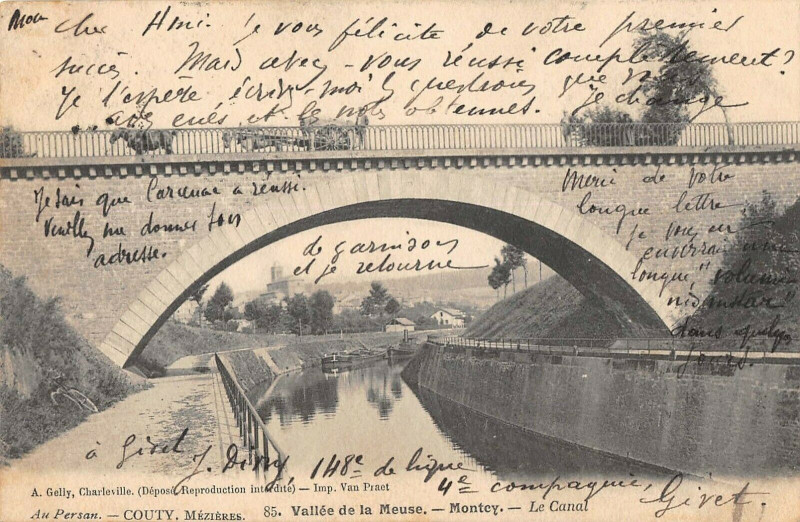 Mon
cher Henri je vous félicite de votre premier
succès. Mais avez-vous réussi complètement?
Je l'espère écrivez-moi les questions que vous
avez eues et les notes obtenues. Je change
de garnison
et je retourne
à Givet
Je sais que Carcenac a réussi.
Veuillez me donner son
adresse.
Merci de votre
longue lettre
je vous en
enverrai une
longue "volumi
nis instar"
dans quelq.
jours.
J. Diny, 148e de ligne
4e compagnie, Givet.
A. Gelly, Charleville. (Déposé, Reproduction interdite) — Imp. Van Praet
Au Persan. — COUTY. MÉZIÈRES. 85. Vallée de la Meuse. — Montcy. — Le Canal